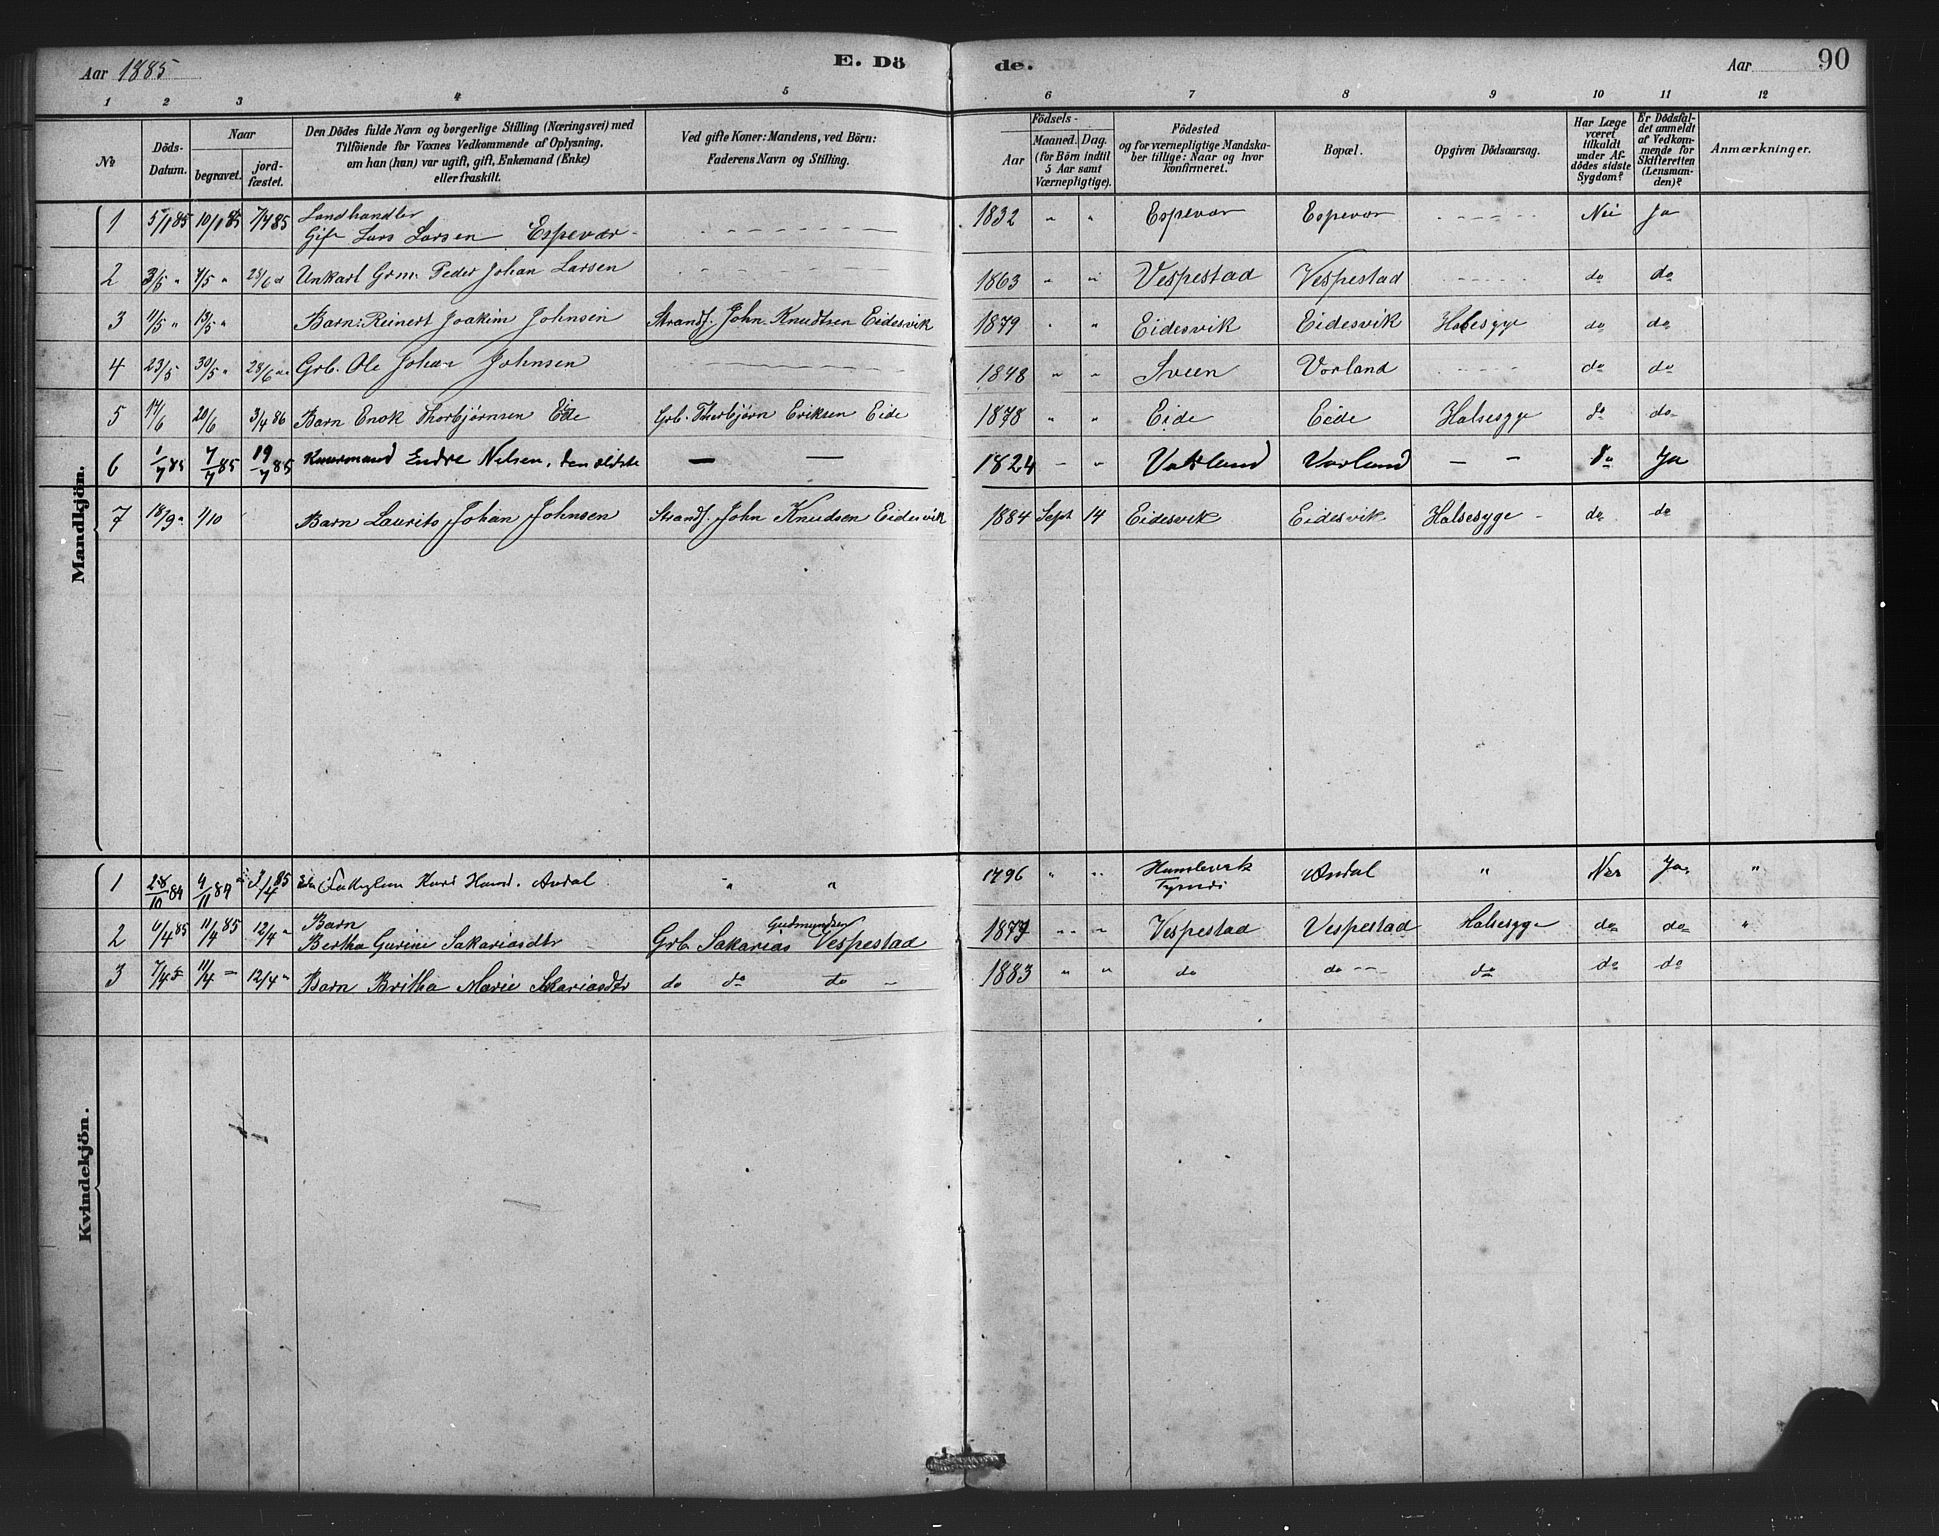 Aar 1885
E. Dö
de.
Aar
90
1 2 3 4 5 6 7 8 9 10 11 12
No
Döds-Datum.
Naar
begravet.
jord-fæstet.
Den Dödes fulde Navn og borgerlige Stilling (Næringsvei) med
Tilföiende for Voxnes Vedkommende af Oplysning,
om han (hun) var ugift, gift, Enkemand (Enke)
eller fraskilt.
Ved gifte Koner: Mandens, ved Börn:
Faderens Navn og Stilling.
Födsels-
Aar
Maaned. Dag.
(for Börn indtil
5 Aar samt
Værnepligtige).
Födested
og for værnepligtige Mandska-
ber tillige: Naar og hvor
konfirmeret.
Bopæl.
Opgiven Dödsaarsag.
Har Læge
været
tilkaldt
under Af-
dödes sidste
Sygdom?
Er Dödsfal-
det anmeldt
af Vedkom-
mende for
Skifteretten
(Lensman-
den)?
Anmærkninger.
Mandkjön.
1 5/1 85 10/1 85 7/4 85 Landhandler
Gift Lars Larsen Espevær - - - - 1832 " " Espevær Espevær - - - - Nei Ja
2 3/5 " 7/5 " 28/6 " Unkarl Grm. Peder Johan Larsen - - - - 1863 " " Vespestad Vespestad - - - - do do
3 11/5 " 13/5 " Barn: Reinert Joakim Johnsen Strands. John Knudtsen Eidesvik 1879 " " Eidesvik Eidesvik Halsesyge do do
4 23/5 30/5 " 28/6 " Grb. Ole Johan Johnsen - - - - 1848 " " Sveen Vorland - - - - do do
5 14/6 20/6 3/4 86 Barn Enok Thorbjørnsen Eide Grb. Thorbjørn Eriksen Eide 1878 " " Eide Eide Halsesyge do do
6 1/7 85 7/7 85 19/7 85 Kaarmand Endre Nilsen, den ældste — — 1824 - " Vorland Vorland - - do Ja
7 18/9 " 1/10 Barn Laurits Johan Johnsen Strands. John Knudsen Eidesvik 1884 Sept 14 Eidesvik Eidesvik Halsesyge - do do
Kvindekjön.
1 28/10 84 4/11 84 /4 85 Kari Andal " " 1796 " " Andal " Nei Ja "
2 6/4 85 11/4 85 12/4 " Barn
Bertha Gurine Sakariasdtr Grb. Sakarias Gudmundsen Vespestad 1877 " " Vespestad Vespestad Halsesyge do do "
3 7/4 11/4 - 12/4 " Barn Britha Marie Sakariasdtr do do do - 1883 " " do do - - do do do